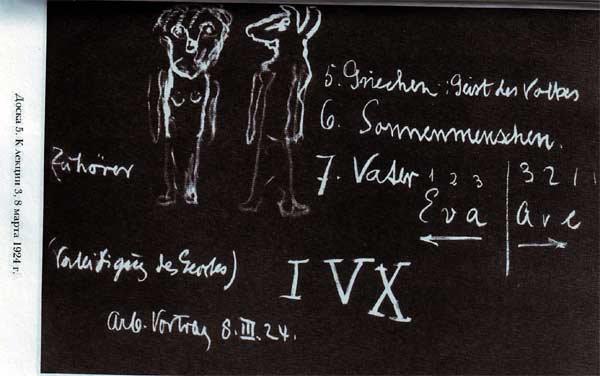 Доска 5. К лекции 3, 8 марта 1924 г.
5. Griechen: Geist des Volkes
6. Sonnenmenschen.
Zuhörer
7. Vater 1 2 3 3 2 1
Eva Ave
des
I V X
Arb. Vortrag 8.III.24.